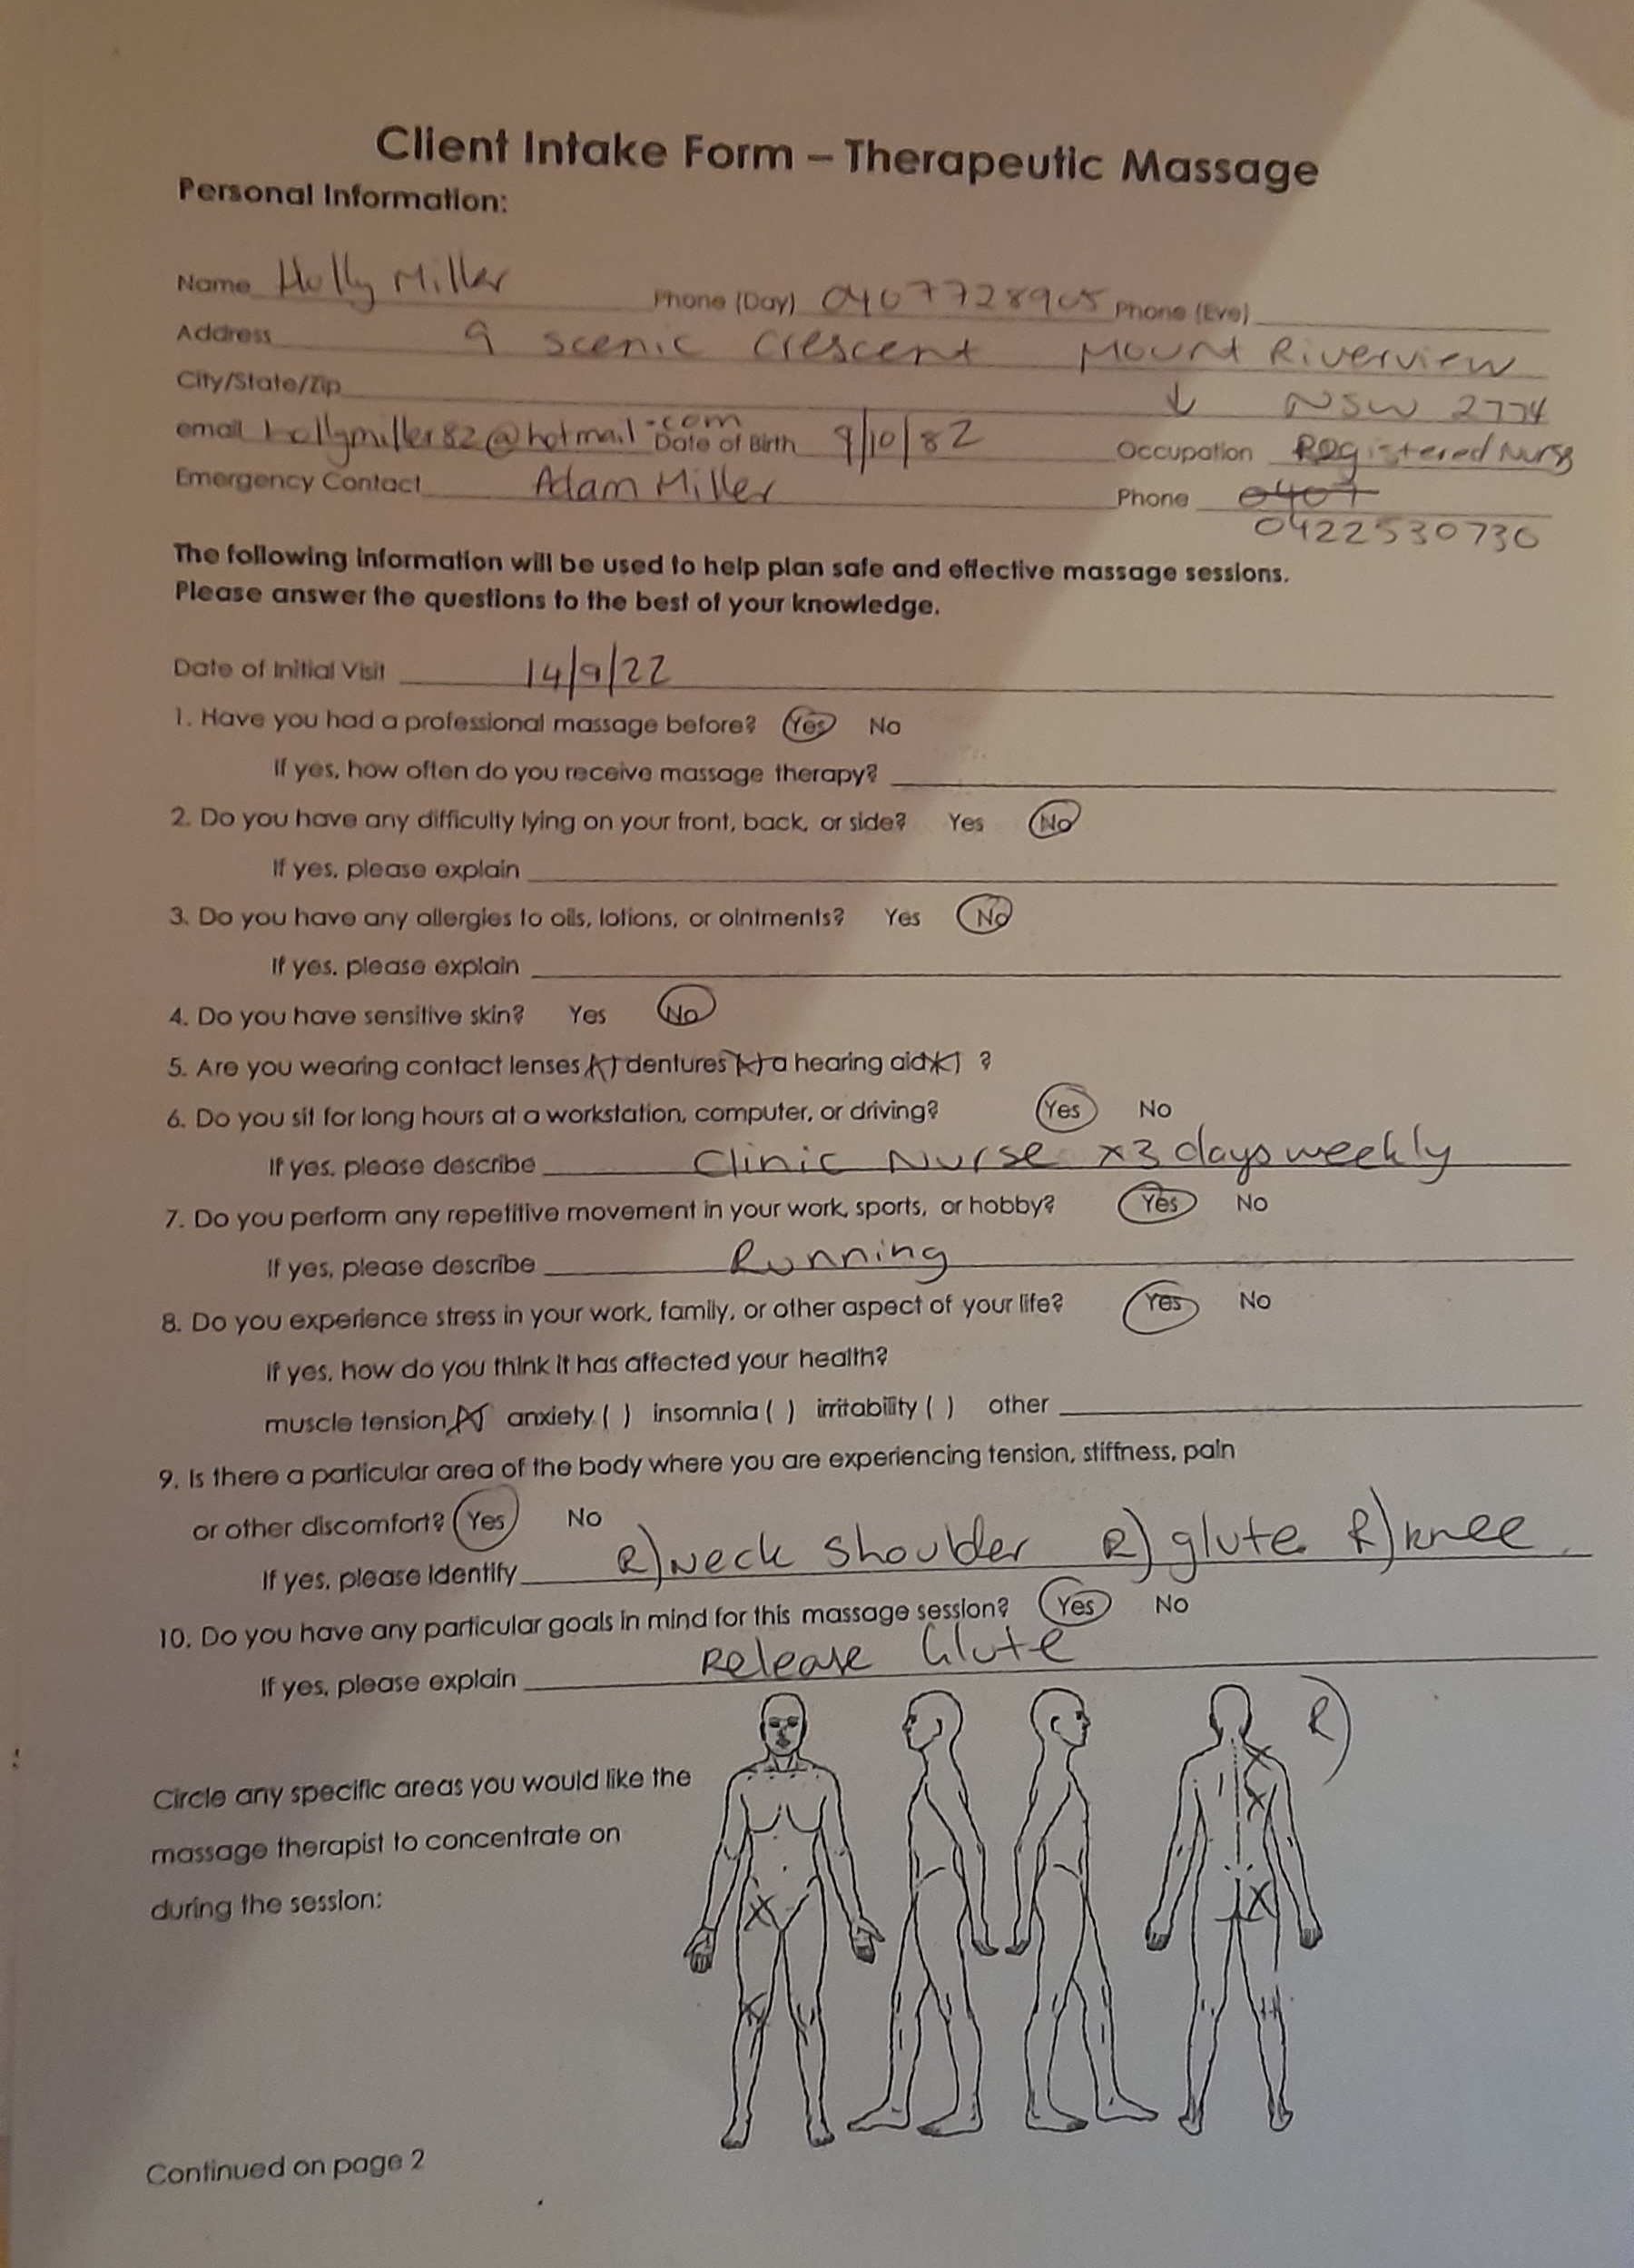 Client Intake Form – Therapeutic Massage
Personal Information:
Name Holly Miller Phone (Day) 0407728905 Phone (Eve)
Address 9 Scenic Crescent Mount Riverview
City/State/Zip ↓ NSW 2774
email hollymiller82@hotmail.com Date of Birth 9/10/82 Occupation Registered Nurse
Emergency Contact Adam Miller Phone 0407
0422530730
The following information will be used to help plan safe and effective massage sessions.
Please answer the questions to the best of your knowledge.
Date of Initial Visit 14/9/22
1. Have you had a professional massage before? Yes No
If yes, how often do you receive massage therapy?
2. Do you have any difficulty lying on your front, back, or side? Yes No
If yes, please explain
3. Do you have any allergies to oils, lotions, or ointments? Yes No
If yes, please explain
4. Do you have sensitive skin? Yes No
5. Are you wearing contact lenses (x) dentures (x) a hearing aid (x) ?
6. Do you sit for long hours at a workstation, computer, or driving? Yes No
If yes, please describe Clinic Nurse x3 days weekly
7. Do you perform any repetitive movement in your work, sports, or hobby? Yes No
If yes, please describe Running
8. Do you experience stress in your work, family, or other aspect of your life? Yes No
If yes, how do you think it has affected your health?
muscle tension (x) anxiety ( ) insomnia ( ) irritability ( ) other
9. Is there a particular area of the body where you are experiencing tension, stiffness, pain
or other discomfort? Yes No
If yes, please identify R) Neck Shoulder R) glute R) knee
10. Do you have any particular goals in mind for this massage session? Yes No
If yes, please explain Release Glute
R)
Circle any specific areas you would like the
massage therapist to concentrate on
during the session:
Continued on page 2